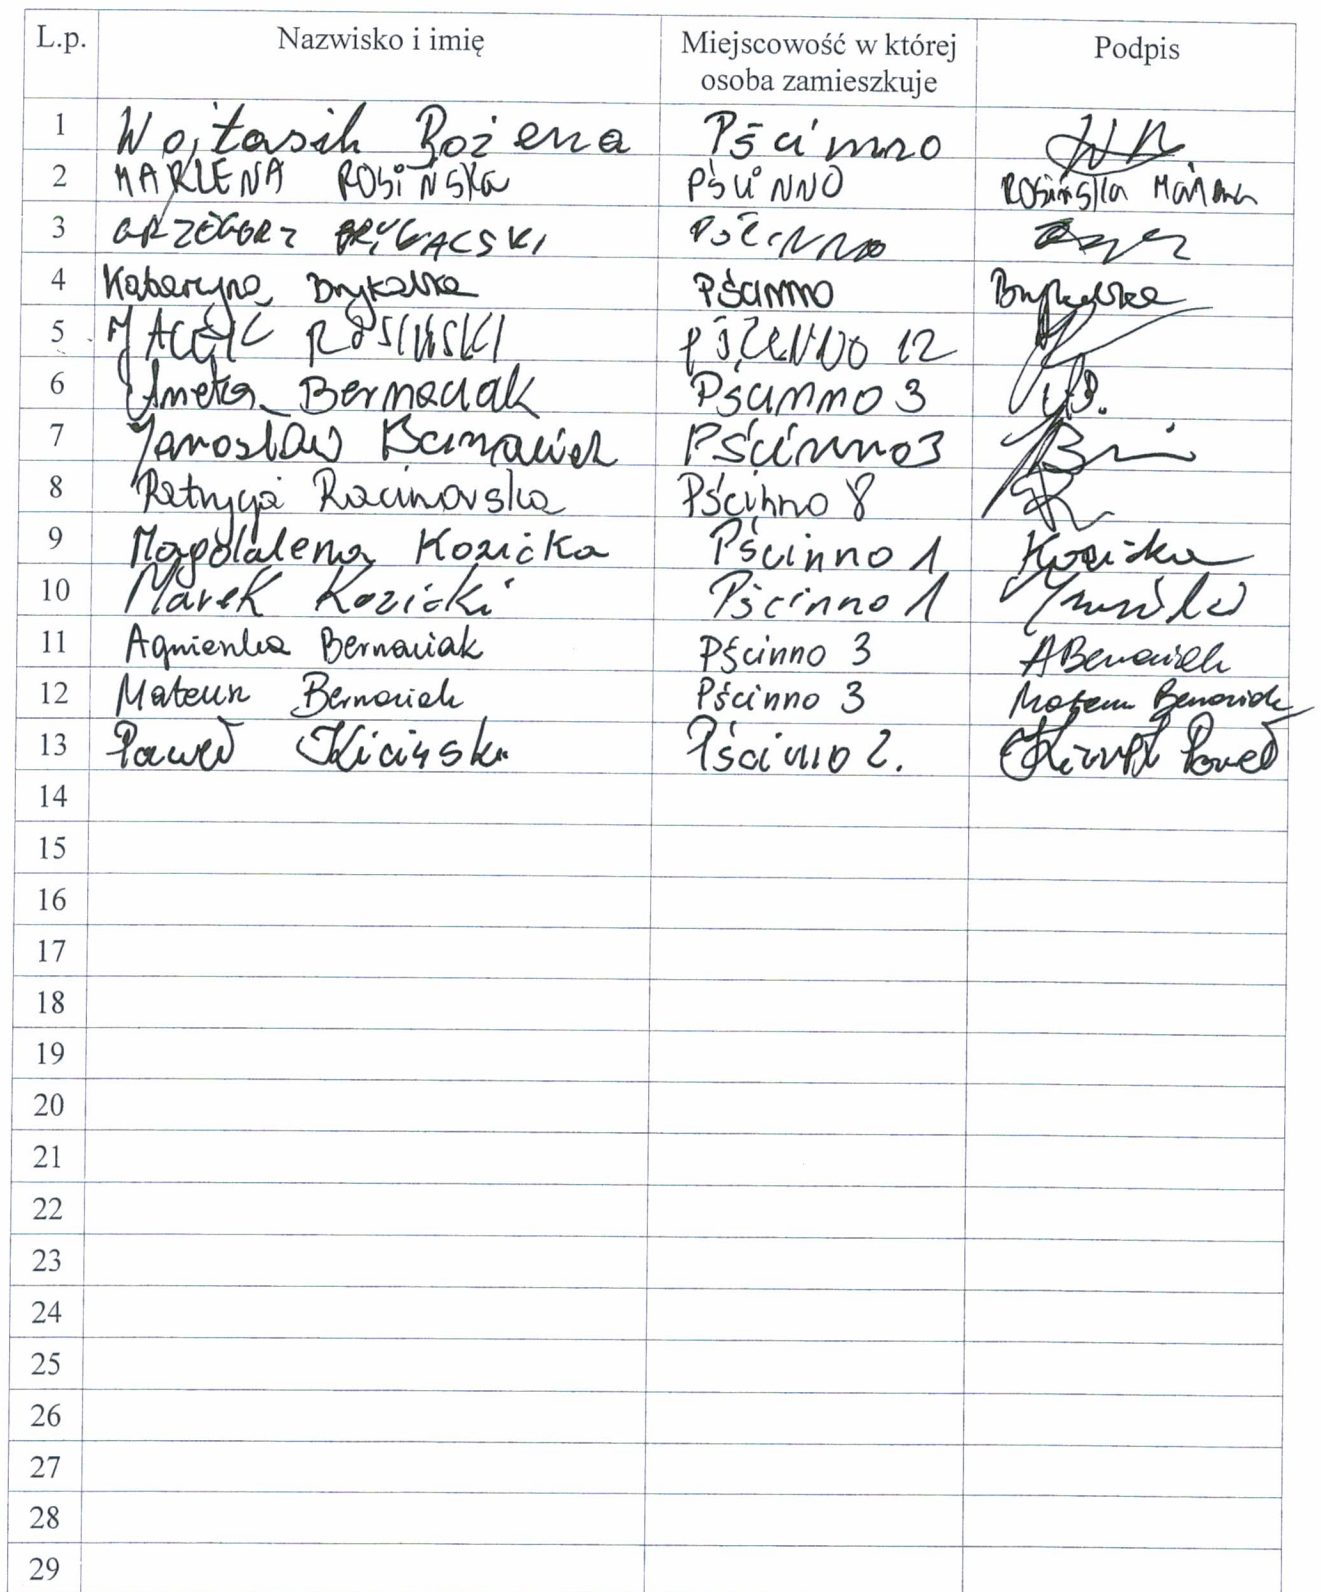 L.p. Nazwisko i imię Miejscowość w której osoba zamieszkuje Podpis
1 Wojtasik Bożena Pścinno
2 MARLENA ROSIŃSKA PŚCINNO Rosińska Marlena
3 GRZEGORZ Pścinno
4 Katarzyna Brykalska Pścinno Brykalska
5 MACIEJ ROSIŃSKI PŚCINNO 12
6 Aneta Bernaciak Pścinno 3 AB.
7 Jarosław Bernaciak Pścinno 3
8 Patrycja Racinowska Pścinno 8
9 Magdalena Kozicka Pścinno 1 Kozicka
10 Marek Kozicki Pścinno 1
11 Agnieszka Bernaciak Pścinno 3 ABernaciak
12 Mateusz Bernaciak Pścinno 3 Mateusz Bernaciak
13 Paweł Kiciński Pścinno 2. Paweł
14
15
16
17
18
19
20
21
22
23
24
25
26
27
28
29